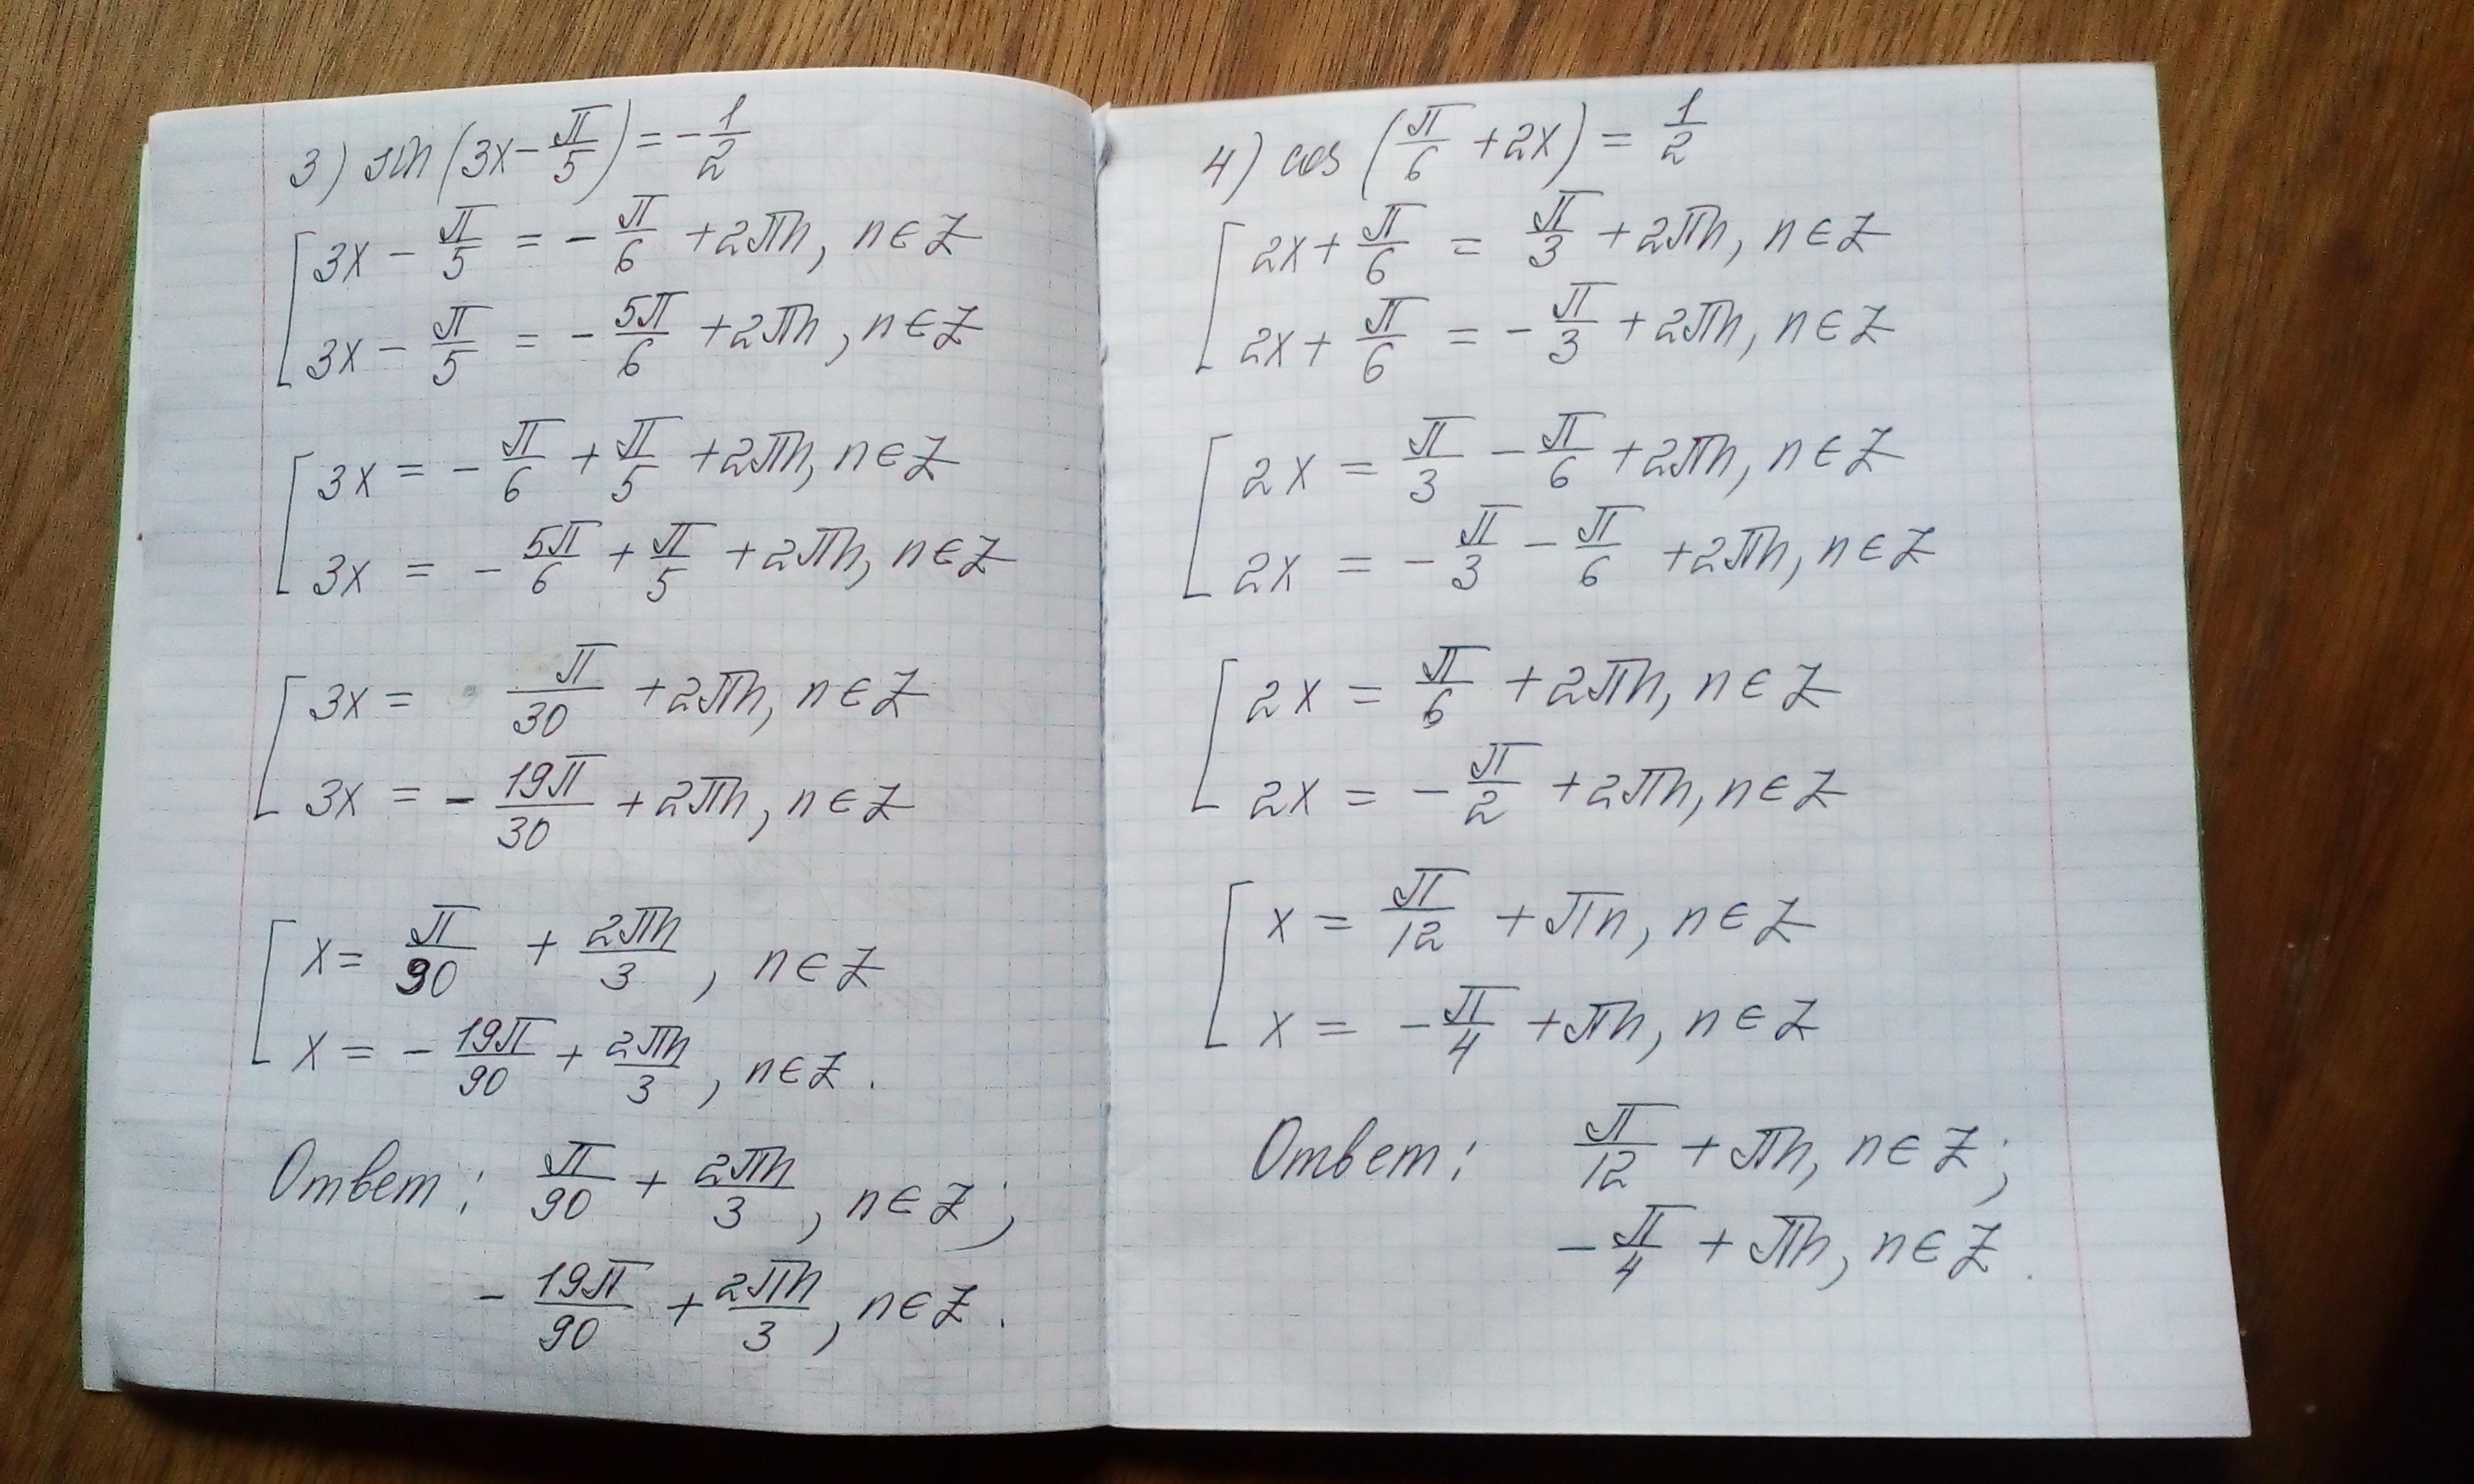 3) sin(3x - π/5) = -1/2
3x - π/5 = -π/6 + 2πn, n∈Z
3x - π/5 = -5π/6 + 2πn, n∈Z
3x = -π/6 + π/5 + 2πn, n∈Z
3x = -5π/6 + π/5 + 2πn, n∈Z
3x = π/30 + 2πn, n∈Z
3x = -19π/30 + 2πn, n∈Z
x = π/90 + 2πn/3, n∈Z
x = -19π/90 + 2πn/3, n∈Z.
Ответ: π/90 + 2πn/3, n∈Z;
-19π/90 + 2πn/3, n∈Z.
4) cos(π/6 + 2x) = 1/2
2x + π/6 = π/3 + 2πn, n∈Z
2x + π/6 = -π/3 + 2πn, n∈Z
2x = π/3 - π/6 + 2πn, n∈Z
2x = -π/3 - π/6 + 2πn, n∈Z
2x = π/6 + 2πn, n∈Z
2x = -π/2 + 2πn, n∈Z
x = π/12 + πn, n∈Z
x = -π/4 + πn, n∈Z
Ответ: π/12 + πn, n∈Z;
-π/4 + πn, n∈Z.